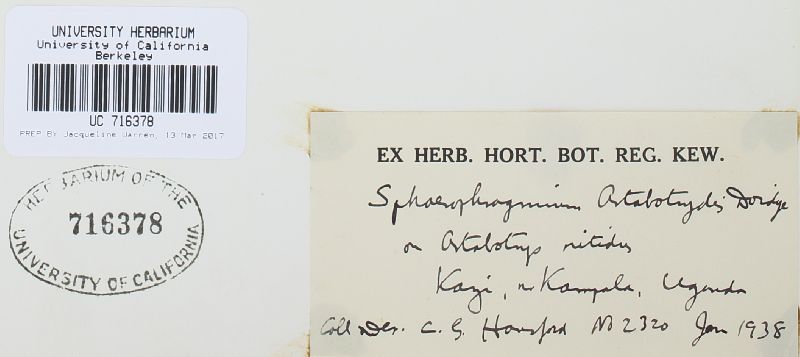 UNIVERSITY HERBARIUM
University of California
Berkeley
UC 716378
PREP By Jacqueline Warren, 13 Mar 2017
HERBARIUM OF THE
716378
UNIVERSITY OF CALIFORNIA
EX HERB. HORT. BOT. REG. KEW.
Sphaerophragmium Artabotrydis Doidge
on Artabotrys nitidus
Kazi, nr Kampala, Uganda
Coll Det. C. G. Hansford No 2320 Jan 1938